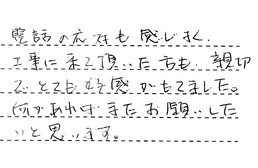 電話の応対も感じよく、
工事に来て頂いた方も、親切
でとても好感がもてました。
何かあればまたお願いした
いと思います。